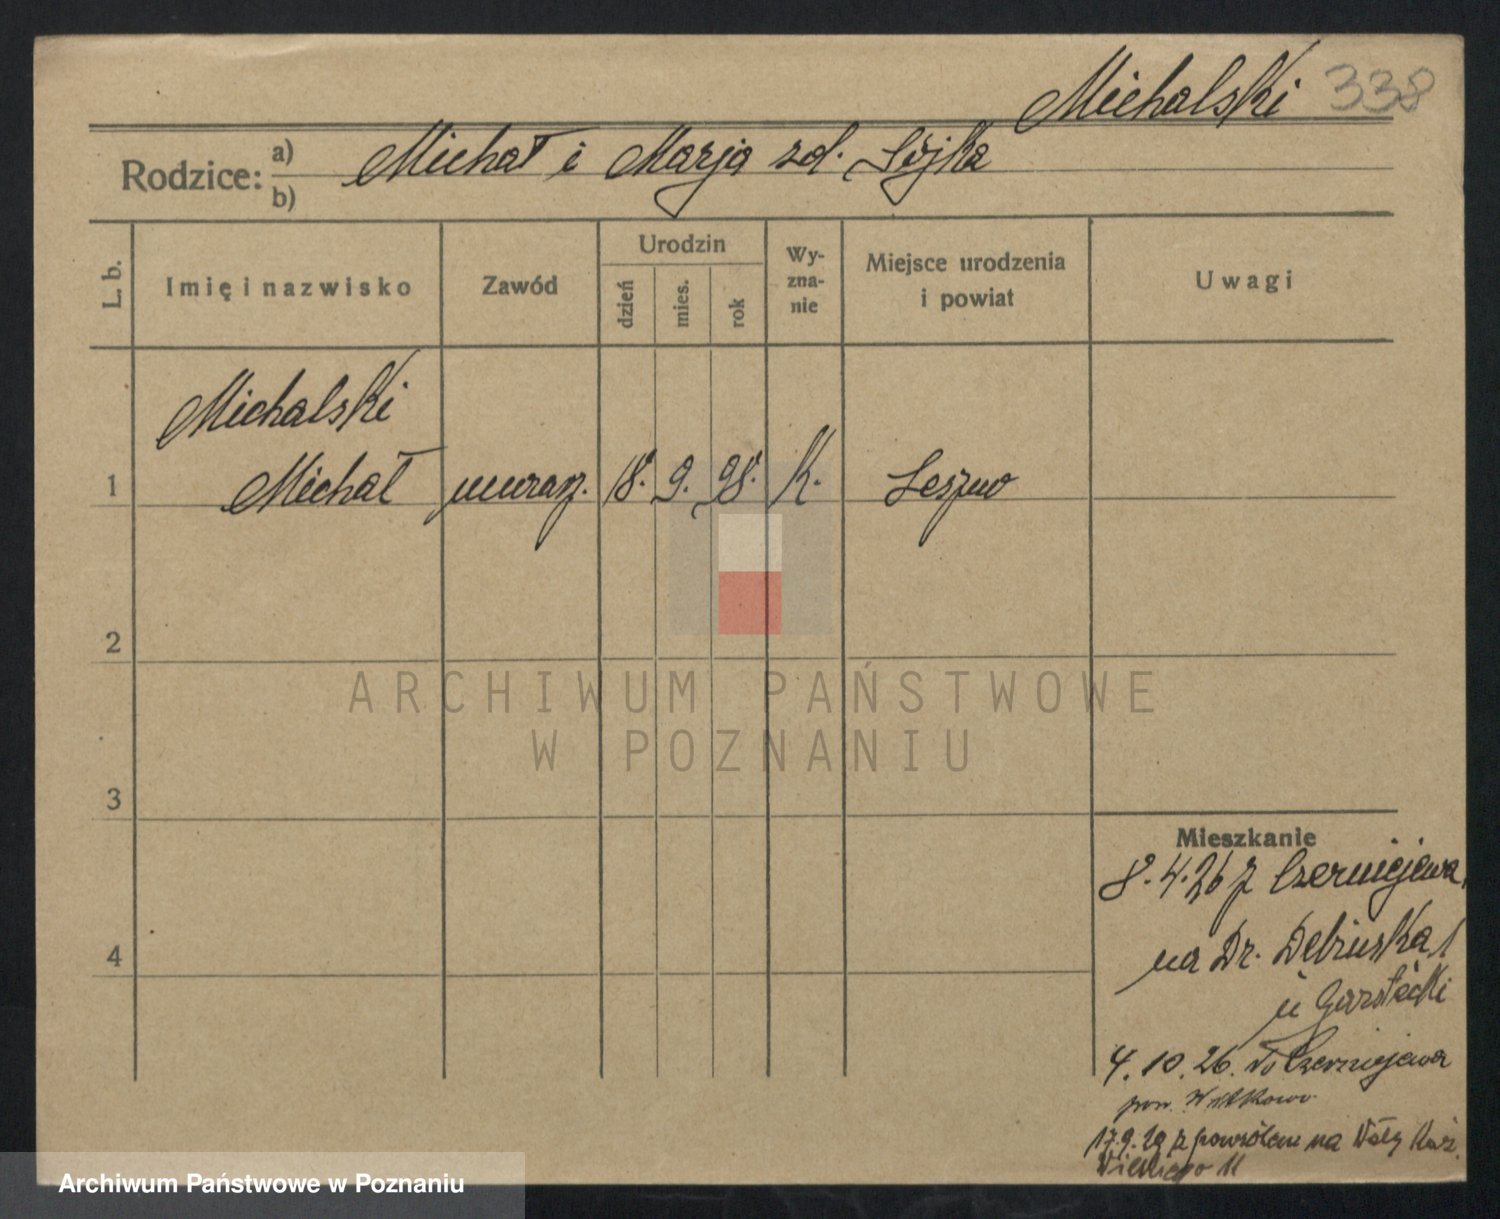 Michalski 338
Rodzice: a) b) Michał i Marja zd. Sójka
L. b. Imię i nazwisko Zawód Urodzin dzień mies. rok Wyznanie Miejsce urodzenia i powiat Uwagi
Michalski
1 Michał murarz. 18. 9. 98. K.
2
ARCHIWUM PAŃSTWOWE
W POZNANIU
3
Mieszkanie
8.4.26 z Czerniejewa,
4 na Dr. Dębińska 1
u Garstecki
4.10.26. do Czerniejewa
pow. Witkowo
17.9.29 z powrotem na Wały Kaź.
Wielkiego 11
Archiwum Państwowe w Poznaniu